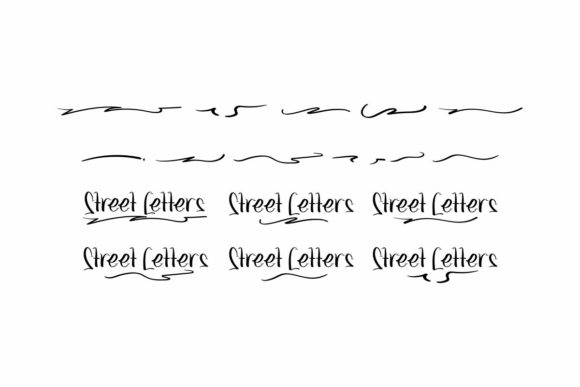 Street Letters Street Letters Street Letters
Street Letters Street Letters Street Letters